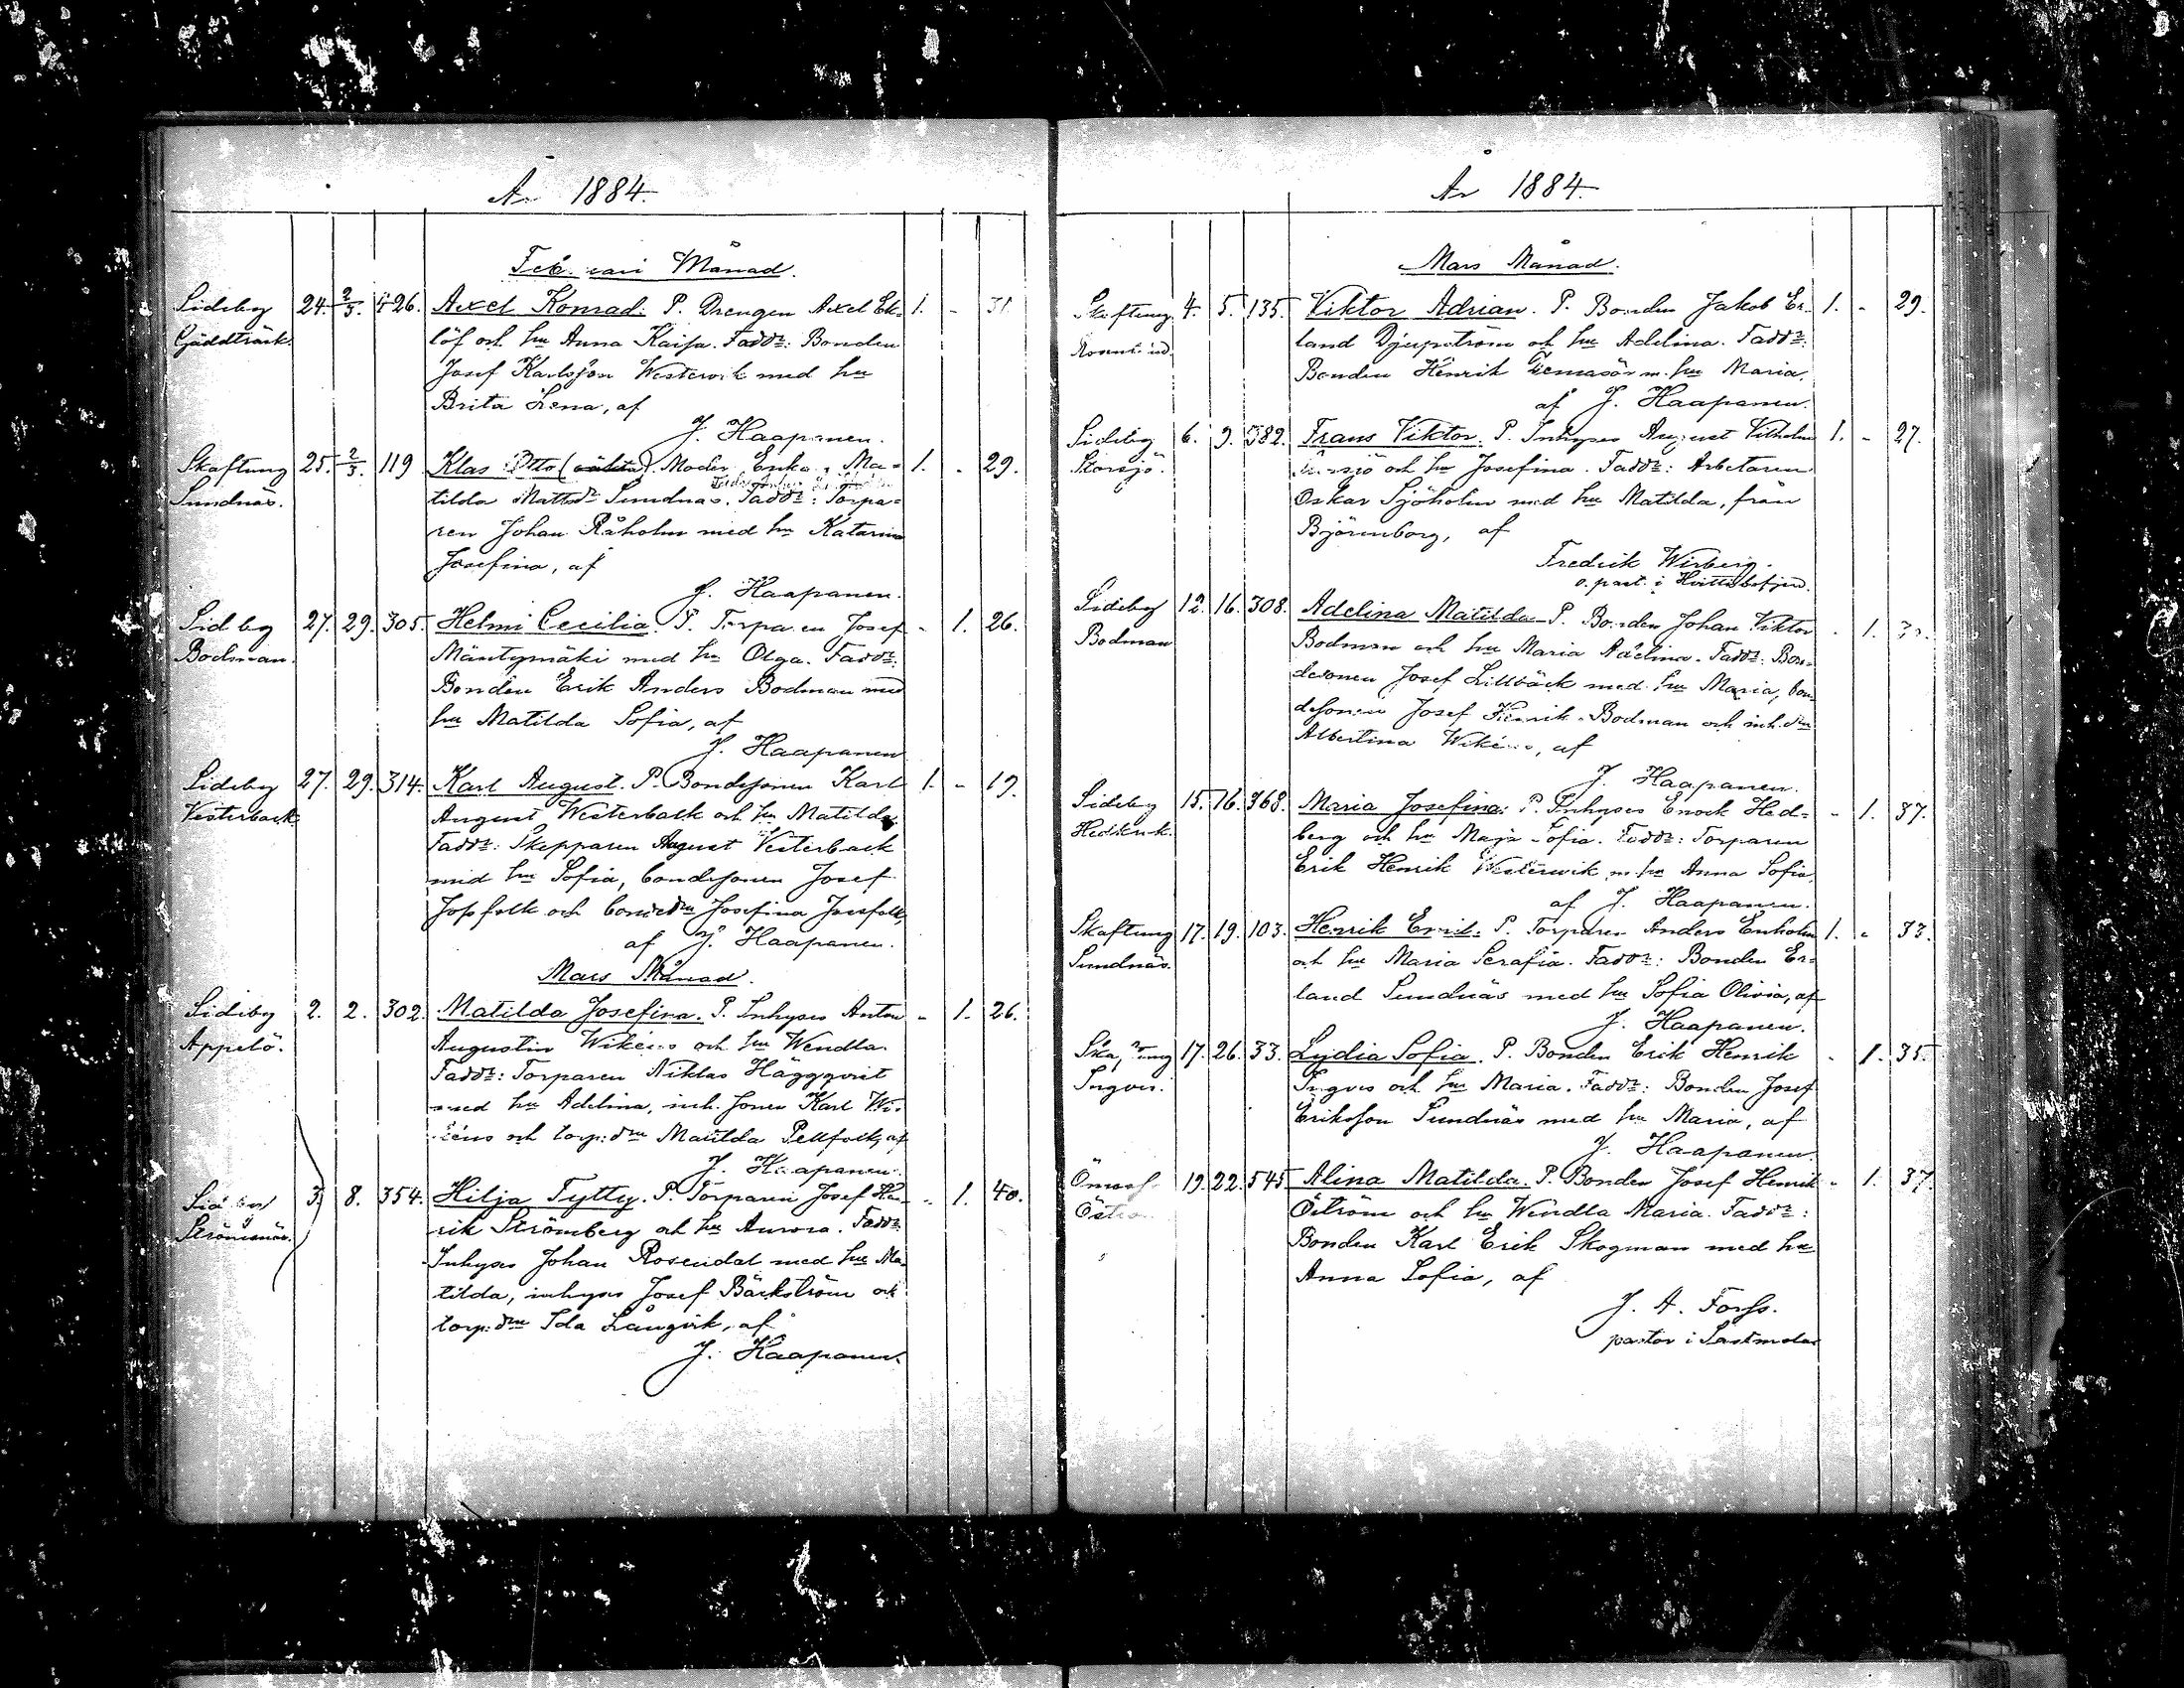 År 1884.
Februari Månad.
Sideby 24. 2/3. 426. Axel Konrad. P. Drengen Axel Ek- 1. - 31.
Gäddträsk. löf och hu Anna Kaisa. Faddr: Bonden
Josef Karlsson Westervik med hu
Brita Lena, af
J. Haapanen.
Skaftung 25. 2/3. 119 Klas Otto (oäkta). Moder Erika Ma- 1. - 29.
Sundnäs. tilda Mattsdr Sundnäs. Faddr: Torpa-
ren Johan Råholm med hu Katarina
Josefina, af
J. Haapanen.
Sideby 27. 29. 305. Helmi Cecilia. P. Torparen Josef - 1. 26.
Bodman. Mäntymäki med hu Olga. Faddr:
Bonden Erik Anders Bodman med
hu Matilda Sofia, af
J. Haapanen
Sideby 27. 29. 314. Karl August. P. Bondesonen Karl 1. - 19.
Vesterback. August Westerback och hu Matilda.
Faddr: Skepparen August Vesterback
med hu Sofia, bondesonen Josef
Jossfolk och bondedn Josefina Jossfolk,
af J. Haapanen.
Mars Månad.
Sideby 2. 2. 302. Matilda Josefina. P. Inhyses Anton - 1. 26.
Appelö. Augustin Wikéns och hu Wendla.
Faddr: Torparen Niklas Häggqvist
med hu Adelina, inh. sonen Karl Wi-
kéns och torp: dn Matilda Pellfolk, af
J. Haapanen.
Sideby 3. 8. 354. Hilja Tytty. P. Torparen Josef Hen- - 1. 40.
Strömsnäs. rik Strömberg och hu Aurora. Faddr:
Inhyses Johan Rosendal med hu Ma-
tilda, inhyses Josef Bäckström och
torp: dn Ida Långvik, af
J. Haapanen.
År 1884.
Mars Månad.
Skaftung 4. 5. 135. Viktor Adrian. P. Bonden Jakob Er- 1. - 29.
land Djupström och hu Adelina. Faddr:
Bonden Henrik m. hu Maria,
af J. Haapanen.
Sideby 6. 9. 382. Frans Viktor. P. Inhyses August Vilhelm 1. - 27.
Storsjö. Storsjö och hu Josefina. Faddr: Arbetaren
Oskar Sjöholm med hu Matilda, från
Björneborg, af
Fredrik Wirberg.
o. past. i Hvittisbofjerd.
Sideby 12. 16. 308. Adelina Matilda. P. Bonden Johan Viktor - 1.
Bodman Bodman och hu Maria Adelina. Faddr: Bon-
desonen Josef Lillbäck med hu Maria, bon-
desonen Josef Henrik Bodman och inh. dn
Albertina Wikéns, af
J. Haapanen.
Sideby 15. 16. 368. Maria Josefina. P. Inhyses Enock Hed- - 1. 37.
berg och hu Maja Sofia. Faddr: Torparen
Erik Henrik Westerwik m. hu Anna Sofia,
af J. Haapanen.
Skaftung 17. 19. 103. Henrik Emil. P. Torparen Anders Enholm 1. - 33.
Sundnäs. och hu Maria Serafia. Faddr: Bonden Er-
land Sundnäs med hu Sofia Olivia, af
J. Haapanen.
Skaftung 17. 26. 33. Lydia Sofia. P. Bonden Erik Henrik - 1. 35.
Ingves. Ingves och hu Maria. Faddr: Bonden Josef
Eriksson Sundnäs med hu Maria, af
J. Haapanen.
Ömoss 19. 22. 545 Alina Matilda. P. Bonden Josef Henrik - 1. 37.
Öström Öström och hu Wendla Maria. Faddr:
Bonden Karl Erik Skogman med hu
Anna Sofia, af
J. A. Forss.
pastor i Sastmola